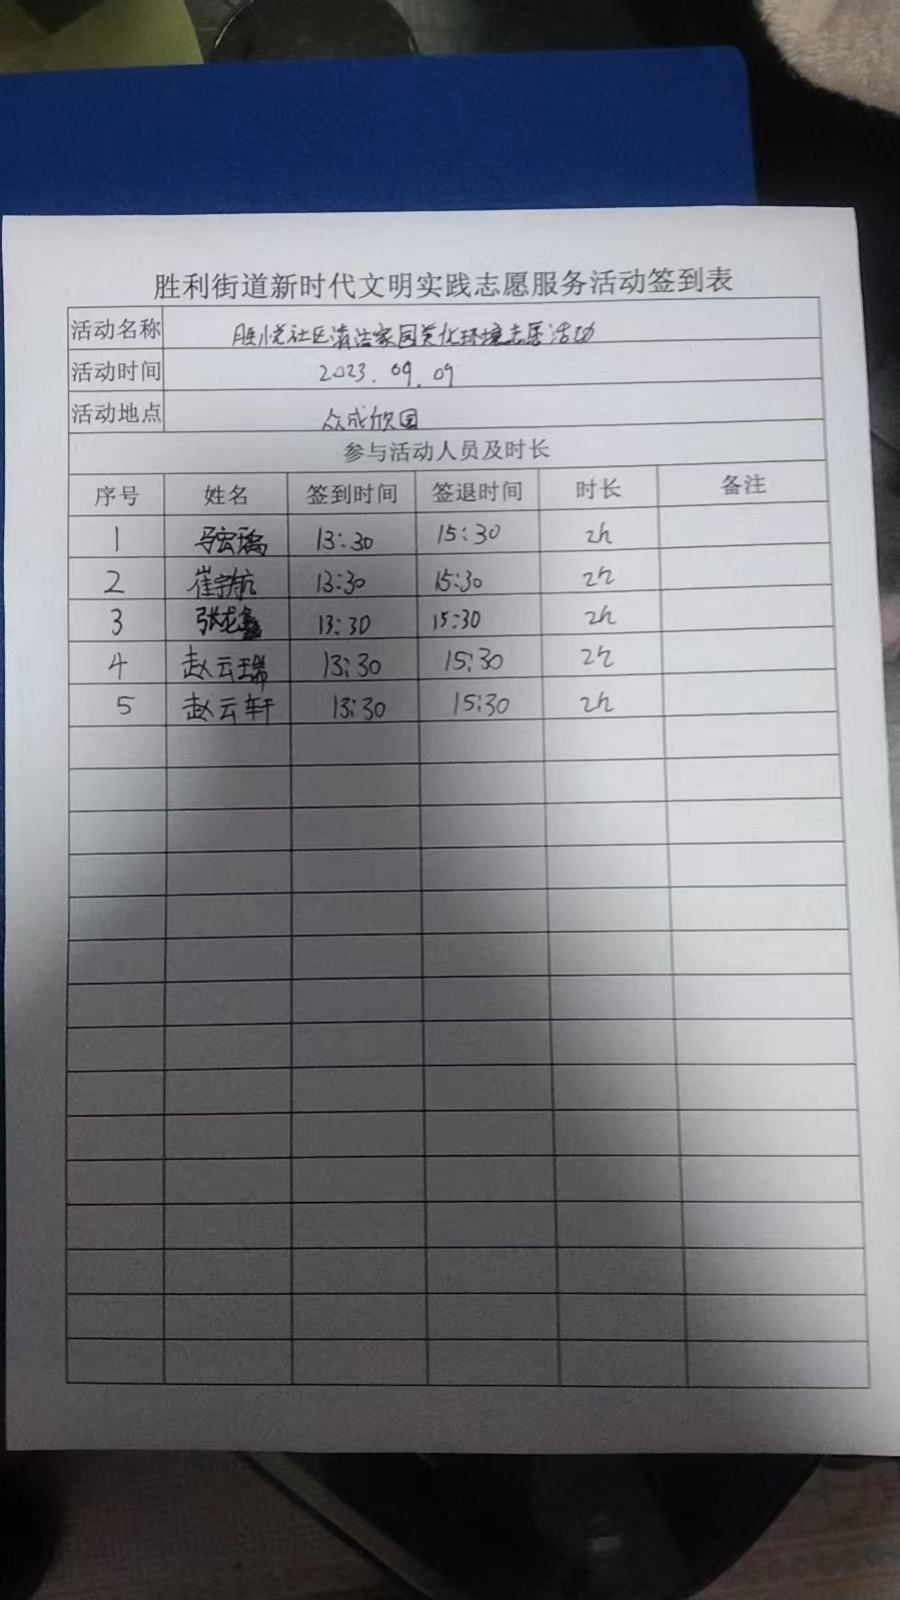 胜利街道新时代文明实践志愿服务活动签到表
活动名称 胜悦社区清洁家园美化环境志愿活动
活动时间 2023.09.09
活动地点 众成欣园
参与活动人员及时长
序号 姓名 签到时间 签退时间 时长 备注
1 13:30 15:30 2h
2 崔宇航 13:30 15:30 2h
3 13:30 15:30 2h
4 赵云瑞 13:30 15:30 2h
5 赵云轩 13:30 15:30 2h